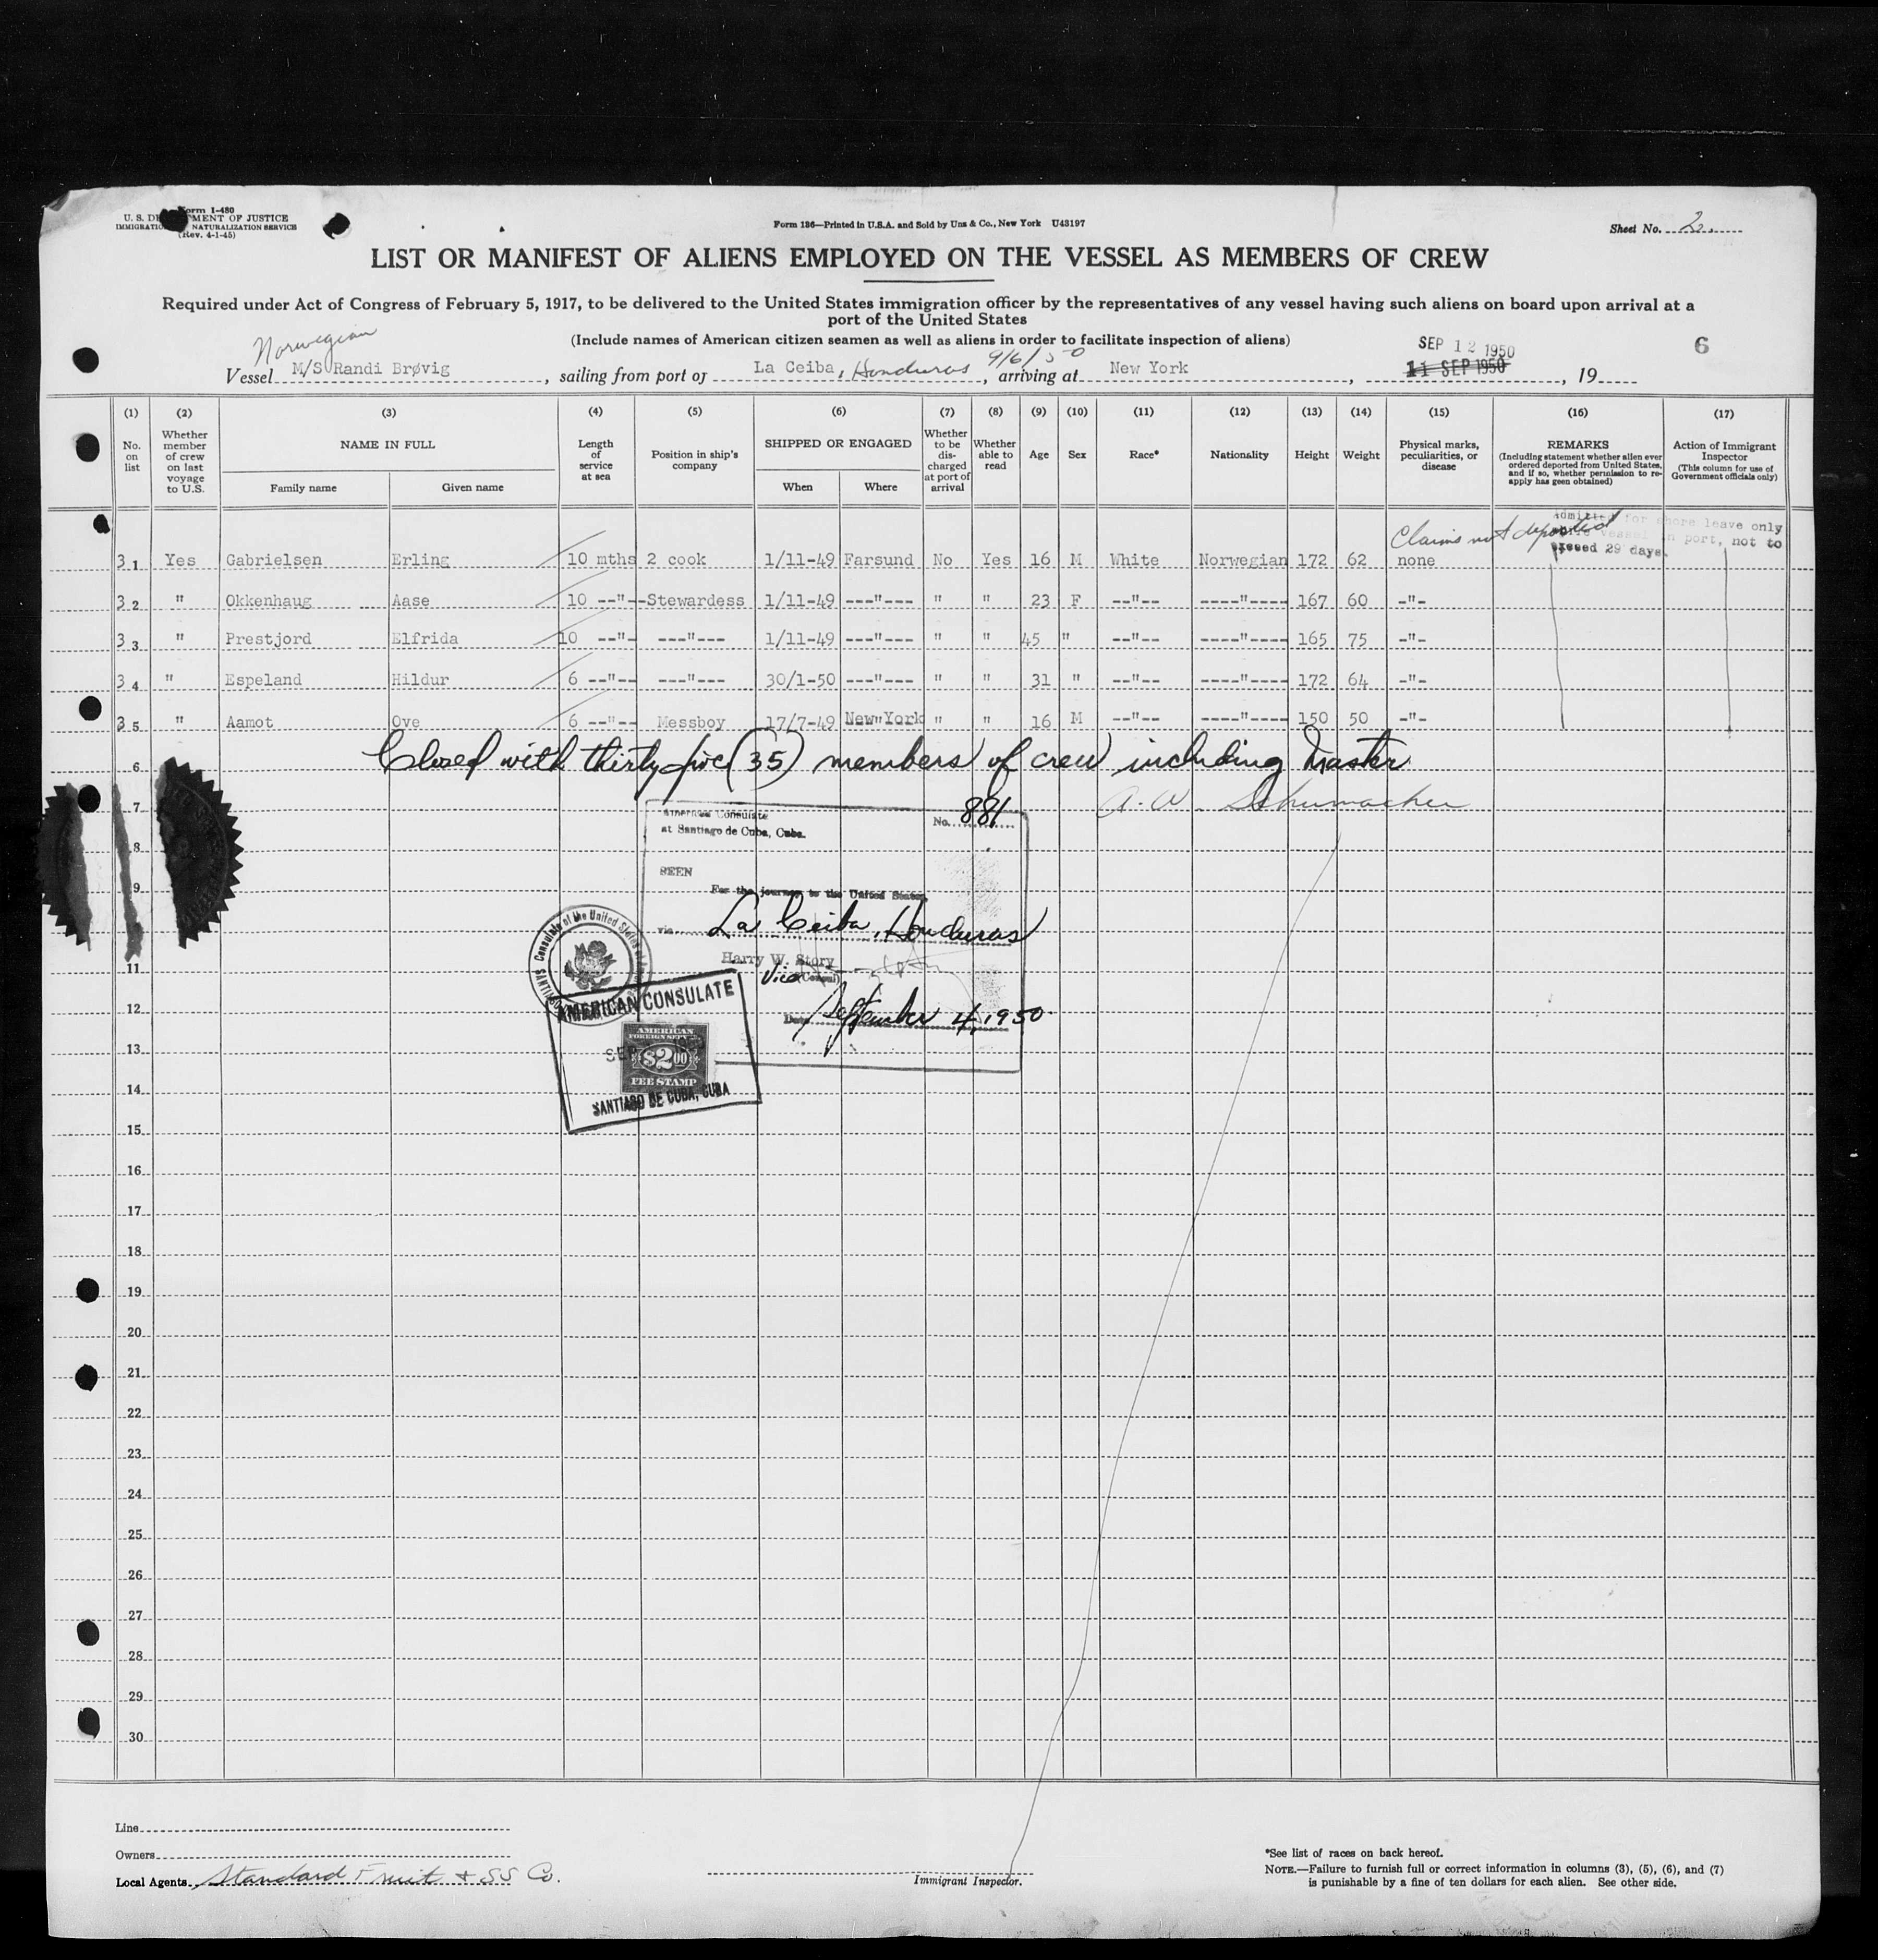 Form I-480
U. S. DE MENT OF JUSTICE
IMMIGRATIO NATURALIZATION SERVICE
(Rev. 4-1-45)
Form 186—Printed in U.S.A. and Sold by Unz & Co., New York U43197
Sheet No. 2.
LIST OR MANIFEST OF ALIENS EMPLOYED ON THE VESSEL AS MEMBERS OF CREW
Required under Act of Congress of February 5, 1917, to be delivered to the United States immigration officer by the representatives of any vessel having such aliens on board upon arrival at a
port of the United States
(Include names of American citizen seamen as well as aliens in order to facilitate inspection of aliens)
Norwegian
SEP 12 1950
6
Vessel M/S Randi Brøvig, sailing from port of La Ceiba, Honduras 9/6/50, arriving at New York, 11 SEP 1950, 19
(1) (2) (3) (4) (5) (6) (7) (8) (9) (10) (11) (12) (13) (14) (15) (16) (17)
No. on list
Whether member of crew on last voyage to U.S.
NAME IN FULL
Family name
Given name
Length of service at sea
Position in ship's company
SHIPPED OR ENGAGED
When
Where
Whether to be dis-charged at port of arrival
Whether able to read
Age
Sex
Race*
Nationality
Height
Weight
Physical marks, peculiarities, or disease
REMARKS
(Including statement whether alien ever ordered deported from United States, and if so, whether permission to re-apply has been obtained)
Action of Immigrant Inspector
(This column for use of Government officials only)
Claims not deported
Admitted for shore leave only
vessel in port, not to
exceed 29 days.
31 Yes Gabrielsen Erling 10 mths 2 cook 1/11-49 Farsund No Yes 16 M White Norwegian 172 62 none
32 " Okkenhaug Aase 10 --"-- Stewardess 1/11-49 ---"--- " " 23 F --"-- ----"---- 167 60 -"-
33 " Prestjord Elfrida 10 --"- ---"--- 1/11-49 ---"--- " " 45 " --"-- ----"---- 165 75 -"-
34 " Espeland Hildur 6 --"-- ---"--- 30/1-50 ---"--- " " 31 " --"-- ----"---- 172 64 -"-
35 " Aamot Ove 6 --"-- Messboy 17/7-49 New York " " 16 M --"-- ----"---- 150 50 -"-
Closed with thirty five (35) members of crew including Master
6
7
A. W. Schumacher
American Consulate
No. 881
at Santiago de Cuba, Cuba.
8
SEEN
9
For the journey to the United States
10
via La Ceiba, Honduras
Harry W. Story
11
Vice Consul
12
Date September 4, 1950
Consulate of the United States
SANTIAGO
AMERICAN CONSULATE
SEP
AMERICAN
FOREIGN SERVICE
$2.00
FEE STAMP
SANTIAGO DE CUBA, CUBA
13
14
15
16
17
18
19
20
21
22
23
24
25
26
27
28
29
30
Line
Owners
Local Agents Standard Fruit & SS Co.
Immigrant Inspector.
*See list of races on back hereof.
NOTE.—Failure to furnish full or correct information in columns (3), (5), (6), and (7)
is punishable by a fine of ten dollars for each alien. See other side.